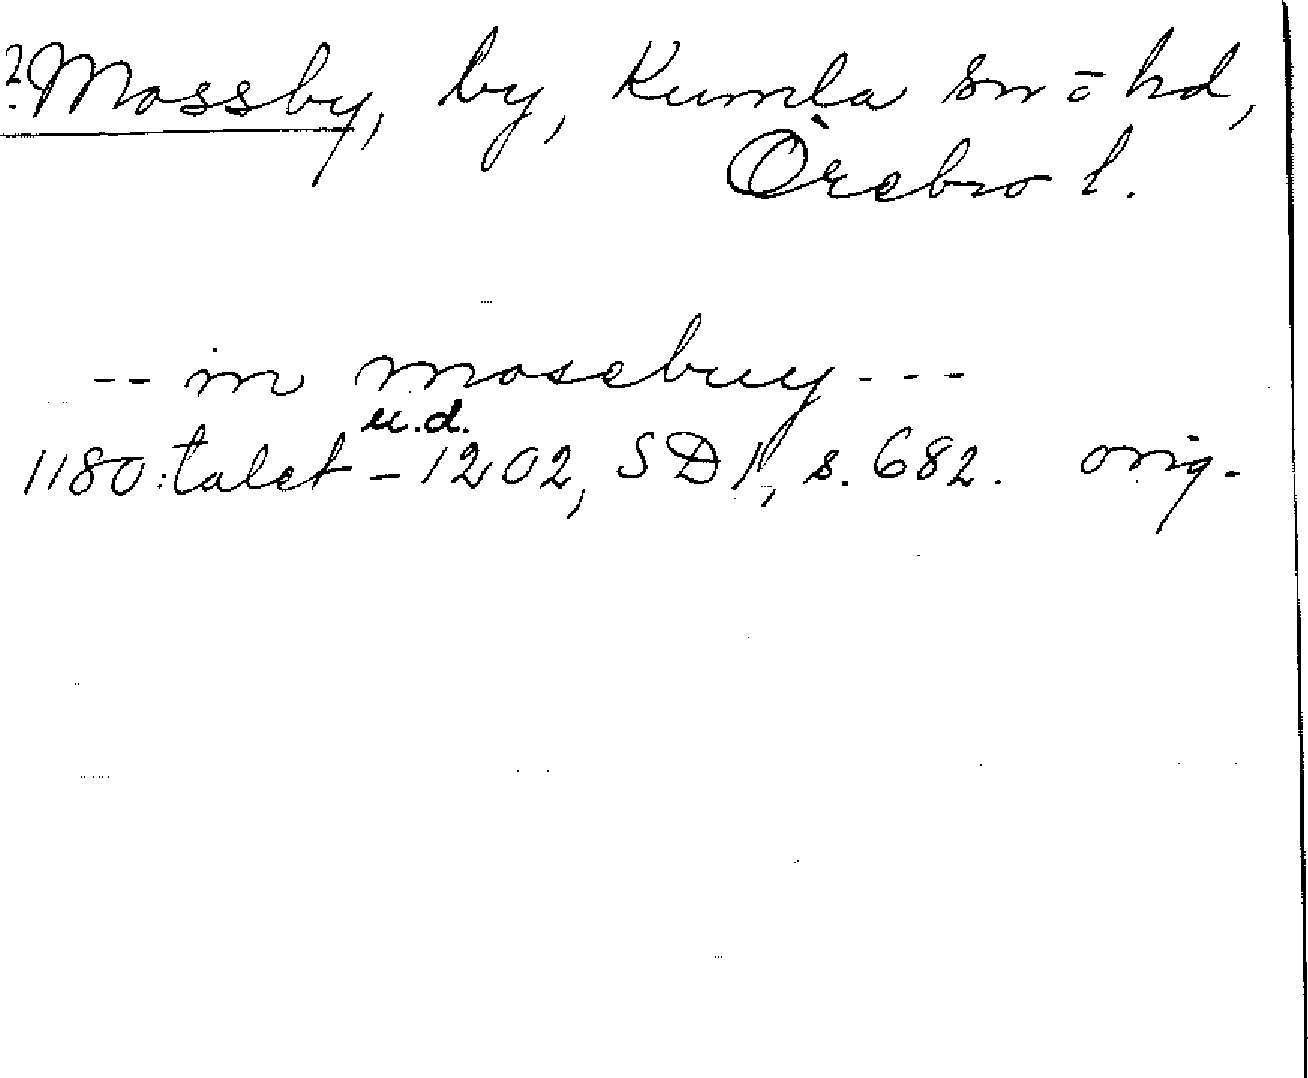 ?Mossby, by, Kumla sn o hd,
Örebro l.
-- in mosebuy - - -
u.d.
1180:talet - 1202, SD1, s. 682. orig.